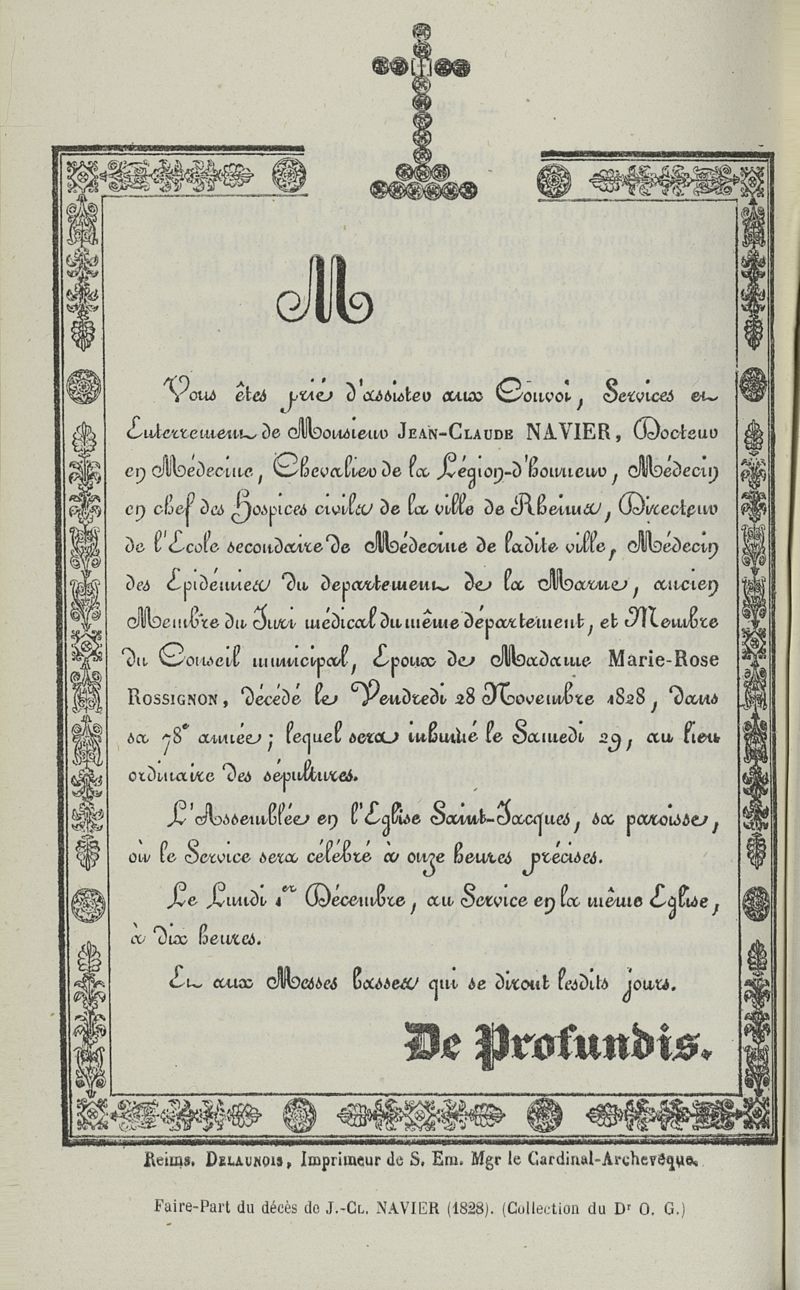 M
Vous êtes prié d'assister aux Convoi, Services et
Enterrement de Monsieur JEAN-CLAUDE NAVIER, Docteur
en Médecine, Chevalier de la Légion-d'honneur, Médecin
en chef des Hospices civils de la ville de Rheims, Directeur
de l'Ecole secondaire de Médecine de ladite ville, Médecin
des Epidémies du departement de la Marne, ancien
Membre du Juri médical du même département, et Membre
du Conseil municipal, Epoux de Madame Marie-Rose
ROSSIGNON, décédé le Vendredi 28 Novembre 1828, dans
sa 78e année; lequel sera inhumé le Samedi 29, au lieu
ordinaire des sépultures.
L'Assemblée en l'Eglise Saint-Jacques, sa paroisse,
où le Service sera célébré à onze heures précises.
Le Lundi 1er Décembre, au Service en la même Eglise,
à dix heures.
Et aux Messes basses qui se diront lesdits jours.
De Profundis.
Reims. DELAUNOIS, Imprimeur de S. Em. Mgr le Cardinal-Archevêque.
Faire-Part du décès de J.-CL. NAVIER (1828). (Collection du Dr O. G.)